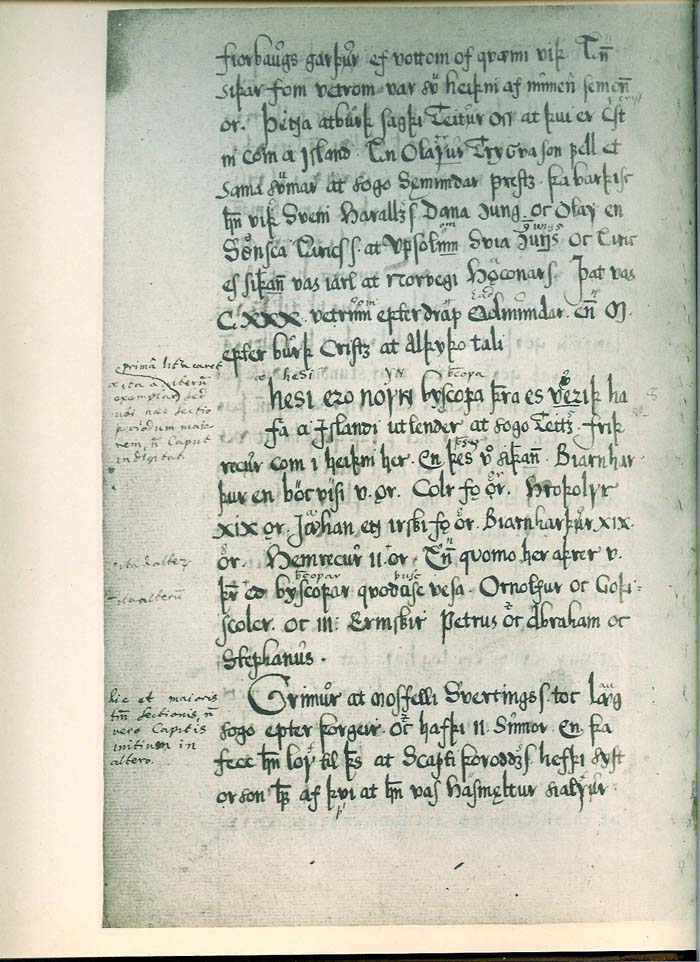 fiorbaugs garþur ef vottom of qvæmi viþ. En
siþar fom vetrom var su heiþni af numen sem en
or. Þenja atburþ sagþi Teitur oss at þvi er Crist
ni com a Island. En Olafur Tryggva son fell et
sama sumar at sogo Sæmundar prestz. þa barþisc
hann viþ Svein Haralldz s. Dana kung. oc Olaf en
Sǿnsca Eirics s. at Upsolum Svia kungs oc Eiric
es siþan vas iarl at Norvegi Hǫconars. Þat vas
C.XXX. vetrom epter drap Eadmundar. en M.
epter burþ Cristz at alþyþo tali
Þesi ero nofn byscopa þeira es veriþ ha
fa a Islandi utlender at sogo Teitz. Friþ
recur com i heiþni her. en þesr vo siþan. Biarnhar
þur en bócvisi v. ǫr. Colr fǫ ǫr. Hroþolfr
XIX ǫr. Johan en irski fǫ ǫr. Biarnharþur XIX.
ǫr. Heinrecur II. or. En quomo her aþrer v.
þeir es byscopar qvoþusc vesa. Ornolfur oc Goþi
scolcr. oc III. Ermskir Petrus oc Abraham oc
Stephanus.
Grimur at Mosfelli Svertings s. toc lǫg
sogo epter Þorgeir. oc hafþi II. sumor. en þa
fecc hann lof til þes at Scapti Þoroddz s hefþi syst
orson hans af þvi at hann vas hásmęltur sialfur
prima lit'a caret
exemplari sed
ubi hæc sectio
periodum maio
rem, n Caput
indigitat.
ita alter
ita alterū
hic et maioris
tm sectionis, n
vero Capitis
initium in
altero.